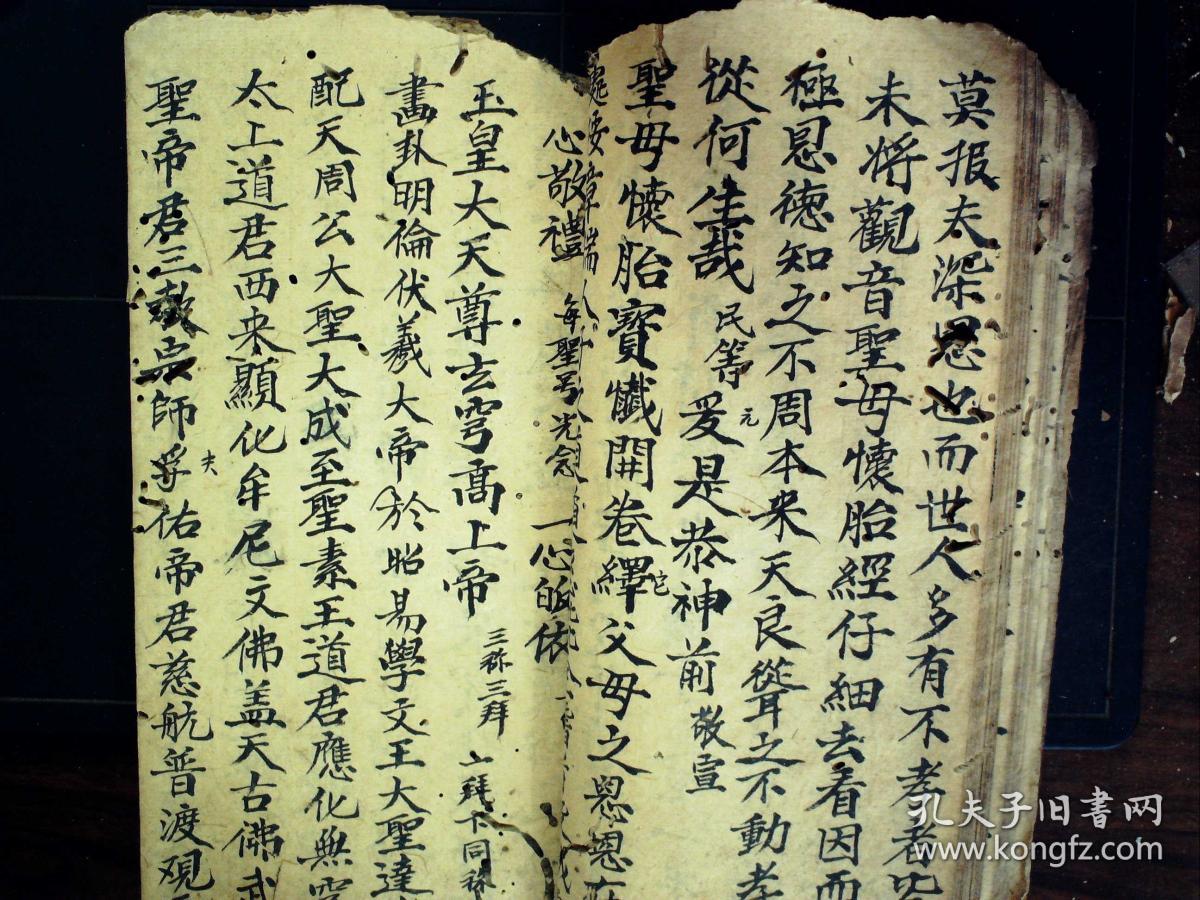 莫报夫深恩也而世人多有不孝者皆
未将觀音聖母懷胎經仔細去看因而
極恩德知之不周本来天良從之不動孝
從何生哉 民等 爰是恭神前 敬宣
聖母懷胎寶懺開卷繹父母之恩恩在
心敬禮 每聖号先念 一心皈依
玉皇大天尊玄穹高上帝 三称三拜 一拜下同称
畫卦明倫伏羲大帝於昭易學文王大聖達
配天周公大聖大成至聖素王道君應化無
太上道君西来顯化牟尼文佛盖天古佛武
聖帝君三教宗師孚佑帝君慈航普渡观
孔夫子旧书网
www.kongfz.com